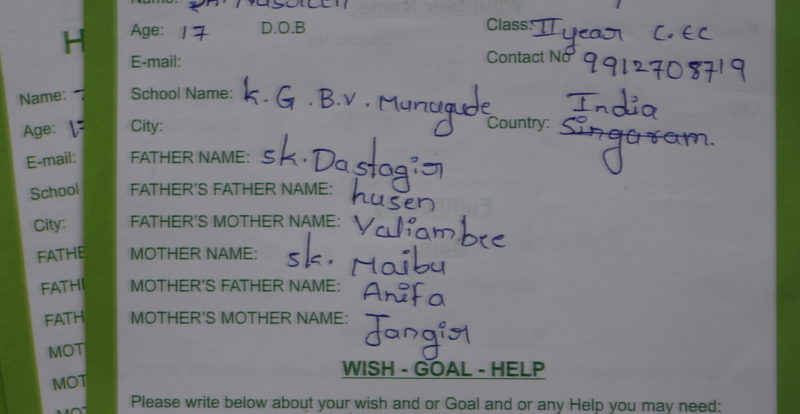 Name: SK. Nasreen
Age: 17 D.O.B Class: II year C.EC
E-mail: Contact No 9912708719
School Name: K.G.B.V. Munugude
City: Country: India Singaram.
FATHER NAME: SK. Dastagir
FATHER'S FATHER NAME: husen
FATHER'S MOTHER NAME: Valiambee
MOTHER NAME: SK. Maibu
MOTHER'S FATHER NAME: Anifa
MOTHER'S MOTHER NAME: Jangir
WISH - GOAL - HELP
Please write below about your wish and or Goal and or any Help you may need:
H
Name:
Age: 17
E-mail:
School
City:
FATHE
FATHE
FATH
MOT
MOT